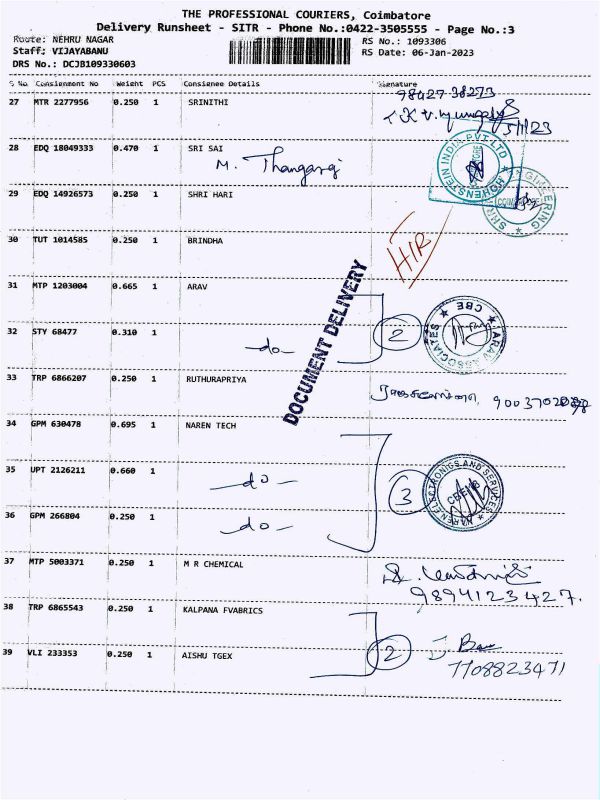 THE PROFESSIONAL COURIERS, Coimbatore
Delivery Runsheet - SITR - Phone No.:0422-3505555 - Page No.:3
Route: NEHRU NAGAR
RS No.: 1093306
Staff: VIJAYABANU
RS Date: 06-Jan-2023
DRS No.: DCJB109330603
S No. Consignment No Weight PCS Consignee Details Signature
98427-38273
27 MTR 2277956 0.250 1 SRINITHI
5/1/23
28 EDQ 18049333 0.470 1 SRI SAI
M. Thangaraj
HOHENSTEIN INDIA PVT. LTD
29 EDQ 14926573 0.250 1 SHRI HARI
ENGINEERING
30 TUT 1014585 0.250 1 BRINDHA
H/R
31 MTP 1203004 0.665 1 ARAV
DOCUMENT DELIVERY
32 STY 68477 0.310 1
-do-
2
ARAV ASSOCIATES CBE
33 TRP 6866207 0.250 1 RUTHURAPRIYA
34 GPM 630478 0.695 1 NAREN TECH
35 UPT 2126211 0.660 1
-do-
3
NAREN ELECTRONICS AND SERVICES
36 GPM 266804 0.250 1
-do-
37 MTP 5003371 0.250 1 M R CHEMICAL
9894123427.
38 TRP 6865543 0.250 1 KALPANA FVABRICS
39 VLI 233353 0.250 1 AISHU TGEX
2
7708823471